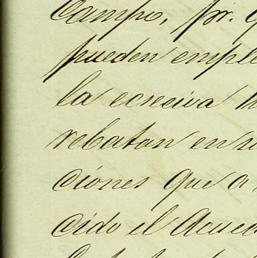 Campo, pr. q
pueden emple
la ecseciva h
rebatan en su
ciones que a
cido el Acued